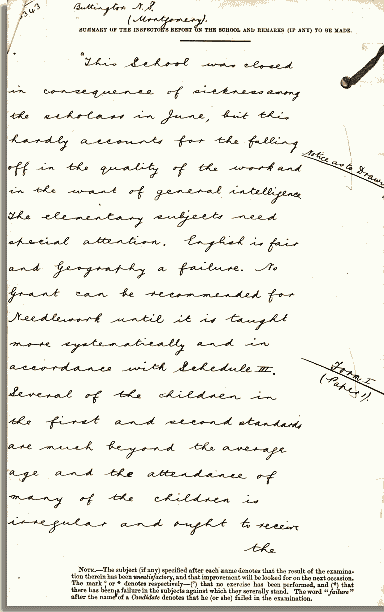 343
Buttington N.S.
(Montgomery).
SUMMARY OF THE INSPECTOR'S REPORT ON THE SCHOOL AND REMARKS (IF ANY) TO BE MADE.
"This School was closed
in consequence of sickness among
the scholars in June, but this
hardly accounts for the falling
off in the quality of the work and
in the want of general intelligence
The elementary subjects need
special attention. English is fair
and Geography a failure. No
Grant can be recommended for
Needlework until it is taught
more systematically and in
accordance with Schedule III.
Several of the children in
the first and second standards
are much beyond the average
age and the attendance of
many of the children is
irregular and ought to receive
the
Notice as to Drawing
Form I
NOTE.—The subject (if any) specified after each name denotes that the result of the examina-
tion therein has been unsatisfactory, and that improvement will be looked for on the next occasion.
The mark or * denotes respectively—() that no exercise has been performed, and (*) that
there has been a failure in the subjects against which they severally stand. The word "failure"
after the name of a Candidate denotes that he (or she) failed in the examination.